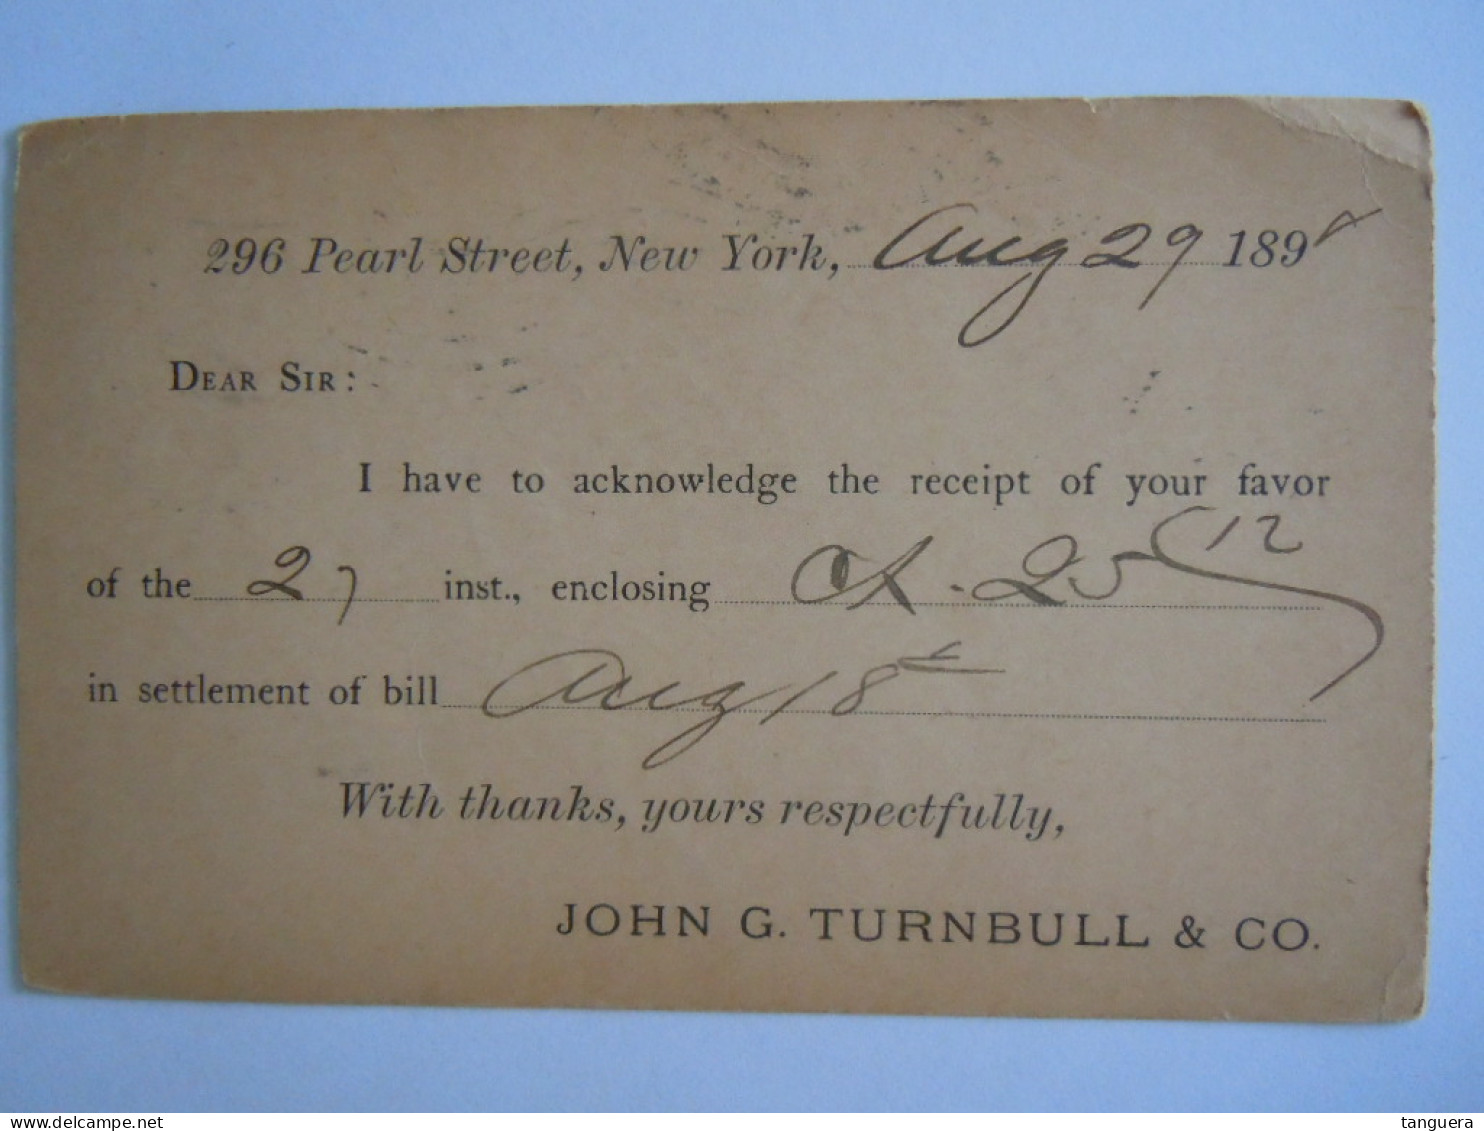 296 Pearl Street, New York, Aug 29 1898
DEAR SIR:
I have to acknowledge the receipt of your favor
of the 27 inst., enclosing Ck. 25 12
in settlement of bill Aug 18
With thanks, yours respectfully,
JOHN G. TURNBULL & CO.
tanguera